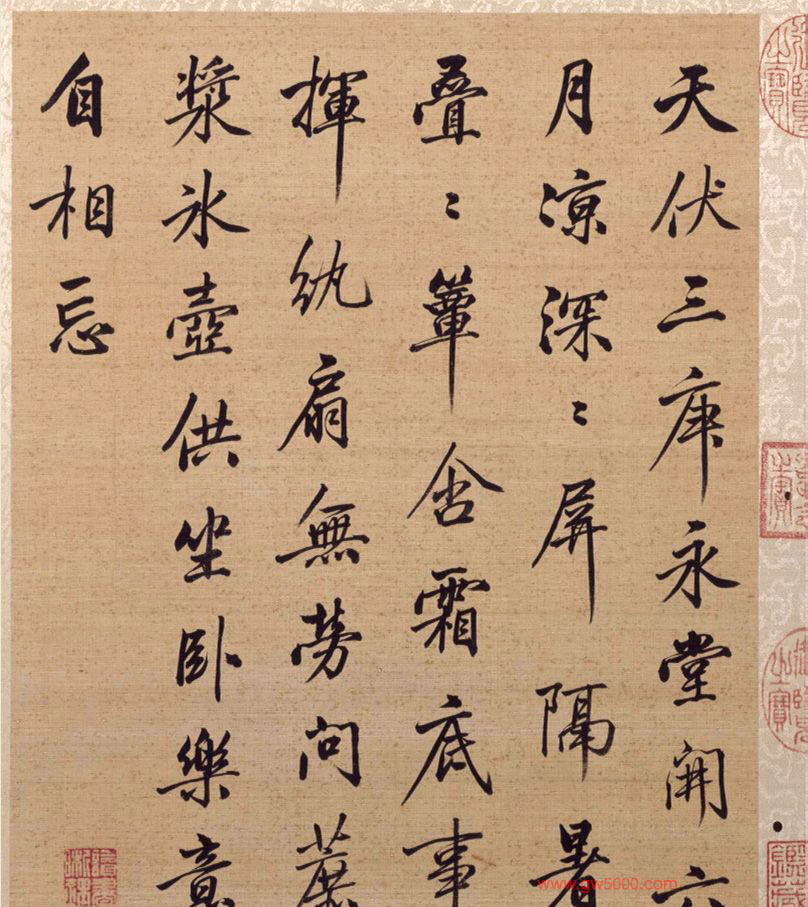 天伏三庚永堂開六
月涼深〻屏隔暑
疊〻簟含霜底事
揮紈扇無勞問蔗
漿氷壺供坐臥樂意
自相忘
www.gw5000.com